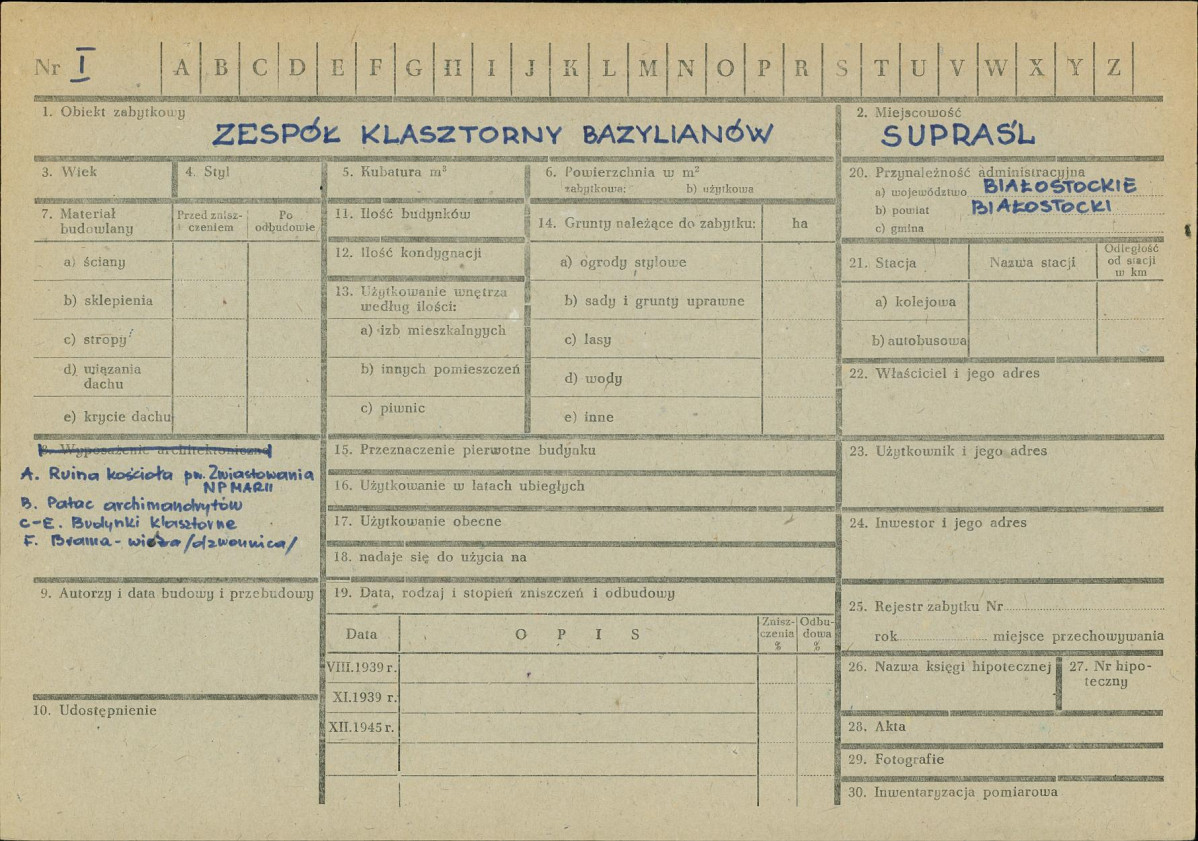 Nr I A B C D E F G H I J K L M N O P R S T U V W X Y Z
1. Obiekt zabytkowy
ZESPÓŁ KLASZTORNY BAZYLIANÓW
2. Miejscowość
SUPRAŚL
3. Wiek
4. Styl
5. Kubatura m³
6. Powierzchnia w m²
zabytkowa: b) użytkowa
20. Przynależność administracyjna
a) województwo BIAŁOSTOCKIE
b) powiat BIAŁOSTOCKI
c) gmina
7. Materiał budowlany
Przed zniszczeniem
Po odbudowie
a) ściany
b) sklepienia
c) stropy
d) wiązania dachu
e) krycie dachu
11. Ilość budynków
12. Ilość kondygnacji
13. Użytkowanie wnętrza według ilości:
a) izb mieszkalnych
b) innych pomieszczeń
c) piwnic
14. Grunty należące do zabytku:
ha
a) ogrody stylowe
b) sady i grunty uprawne
c) lasy
d) wody
e) inne
21. Stacja
Nazwa stacji
Odległość od stacji w km
a) kolejowa
b) autobusowa
22. Właściciel i jego adres
8. Wyposażenie architektoniczne
A. Ruina kościoła pw. Zwiastowania
NP MARII
B. Pałac archimandrytów
C-E. Budynki klasztorne
F. Brama - wieża /dzwonnica/
15. Przeznaczenie pierwotne budynku
16. Użytkowanie w latach ubiegłych
17. Użytkowanie obecne
18. nadaje się do użycia na
23. Użytkownik i jego adres
24. Inwestor i jego adres
9. Autorzy i data budowy i przebudowy
10. Udostępnienie
19. Data, rodzaj i stopień zniszczeń i odbudowy
Data
O P I S
Zniszczenia %
Odbudowa %
VIII.1939 r.
XI.1939 r.
XII.1945 r.
25. Rejestr zabytku Nr
rok miejsce przechowywania
26. Nazwa księgi hipotecznej
27. Nr hipoteczny
28. Akta
29. Fotografie
30. Inwentaryzacja pomiarowa